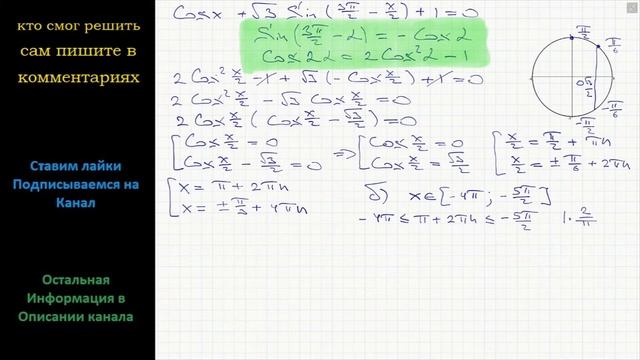 кто смог решить
сам пишите в
комментариях
Ставим лайки
Подписываемся на
Канал
Остальная
Информация в
Описании канала
Cosx + √3 Sin (3π/2 - x/2) + 1 = 0
Sin(3π/2 - α) = - Cos α
Cos 2α = 2 Cos² α - 1
2 Cos² x/2 - 1 + √3 (- Cos x/2) + 1 = 0
2 Cos² x/2 - √3 Cos x/2 = 0
2 Cos x/2 ( Cos x/2 - √3/2 ) = 0
[ Cos x/2 = 0 => [ Cos x/2 = 0 [ x/2 = π/2 + πn
Cos x/2 - √3/2 = 0 Cos x/2 = √3/2 x/2 = ± π/6 + 2πn
[ x = π + 2πn б) x ∈ [-4π; -5π/2]
x = ± π/3 + 4πn - 4π ≤ π + 2πn ≤ - 5π/2 | · 2/π
π/2
π/6
0 √3/2
-π/6
-π/2